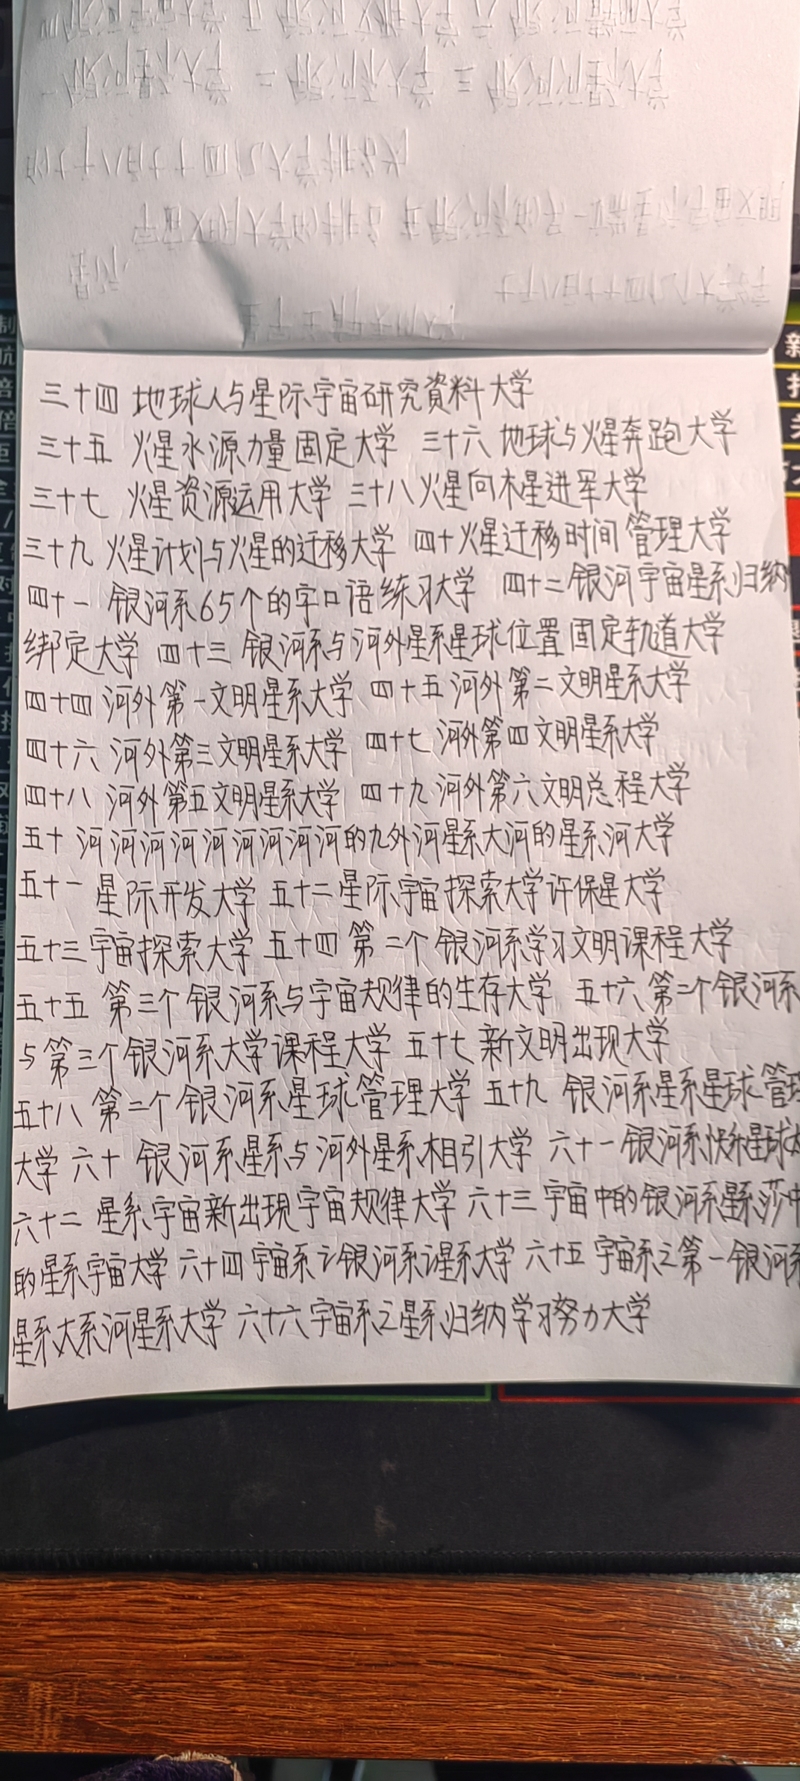 三十四 地球人与星际宇宙研究資料大学
三十五 火星水源力量固定大学 三十六 地球与火星奔跑大学
三十七 火星资源运用大学 三十八火星向木星进军大学
三十九 火星计划与火星的迁移大学 四十火星迁移时间管理大学
四十一 银河系65个的字口语练习大学 四十二银河宇宙星系归纳
绑定大学 四十三 银河系与河外星系星球位置固定轨道大学
四十四 河外第一文明星系大学 四十五河外第二文明星系大学
四十六 河外第三文明星系大学 四十七 河外第四文明星系大学
四十八 河外第五文明星系大学 四十九河外第六文明总程大学
五十 河河河河河河河河河的九外河星系大河的星系河大学
五十一 星际开发大学 五十二星际宇宙探索大学许保星大学
五十三宇宙探索大学 五十四 第二个银河系学习文明课程大学
五十五 第三个银河系与宇宙规律的生存大学 五十六 第二个银河系
与第三个银河系大学课程大学 五十七 新文明出现大学
五十八 第二个银河系星球管理大学 五十九 银河系星系星球管理
大学 六十 银河系星系与河外星系相引大学 六十一银河系快系星球
六十二 星系宇宙新出現宇宙规律大学 六十三宇宙中的银河系星系莎中
的星系宇宙大学 六十四宇宙系之银河系星系大学 六十五 宇宙系之第一银河系
星系大系河星系大学 六十六宇宙系之星系归纳学习努力大学